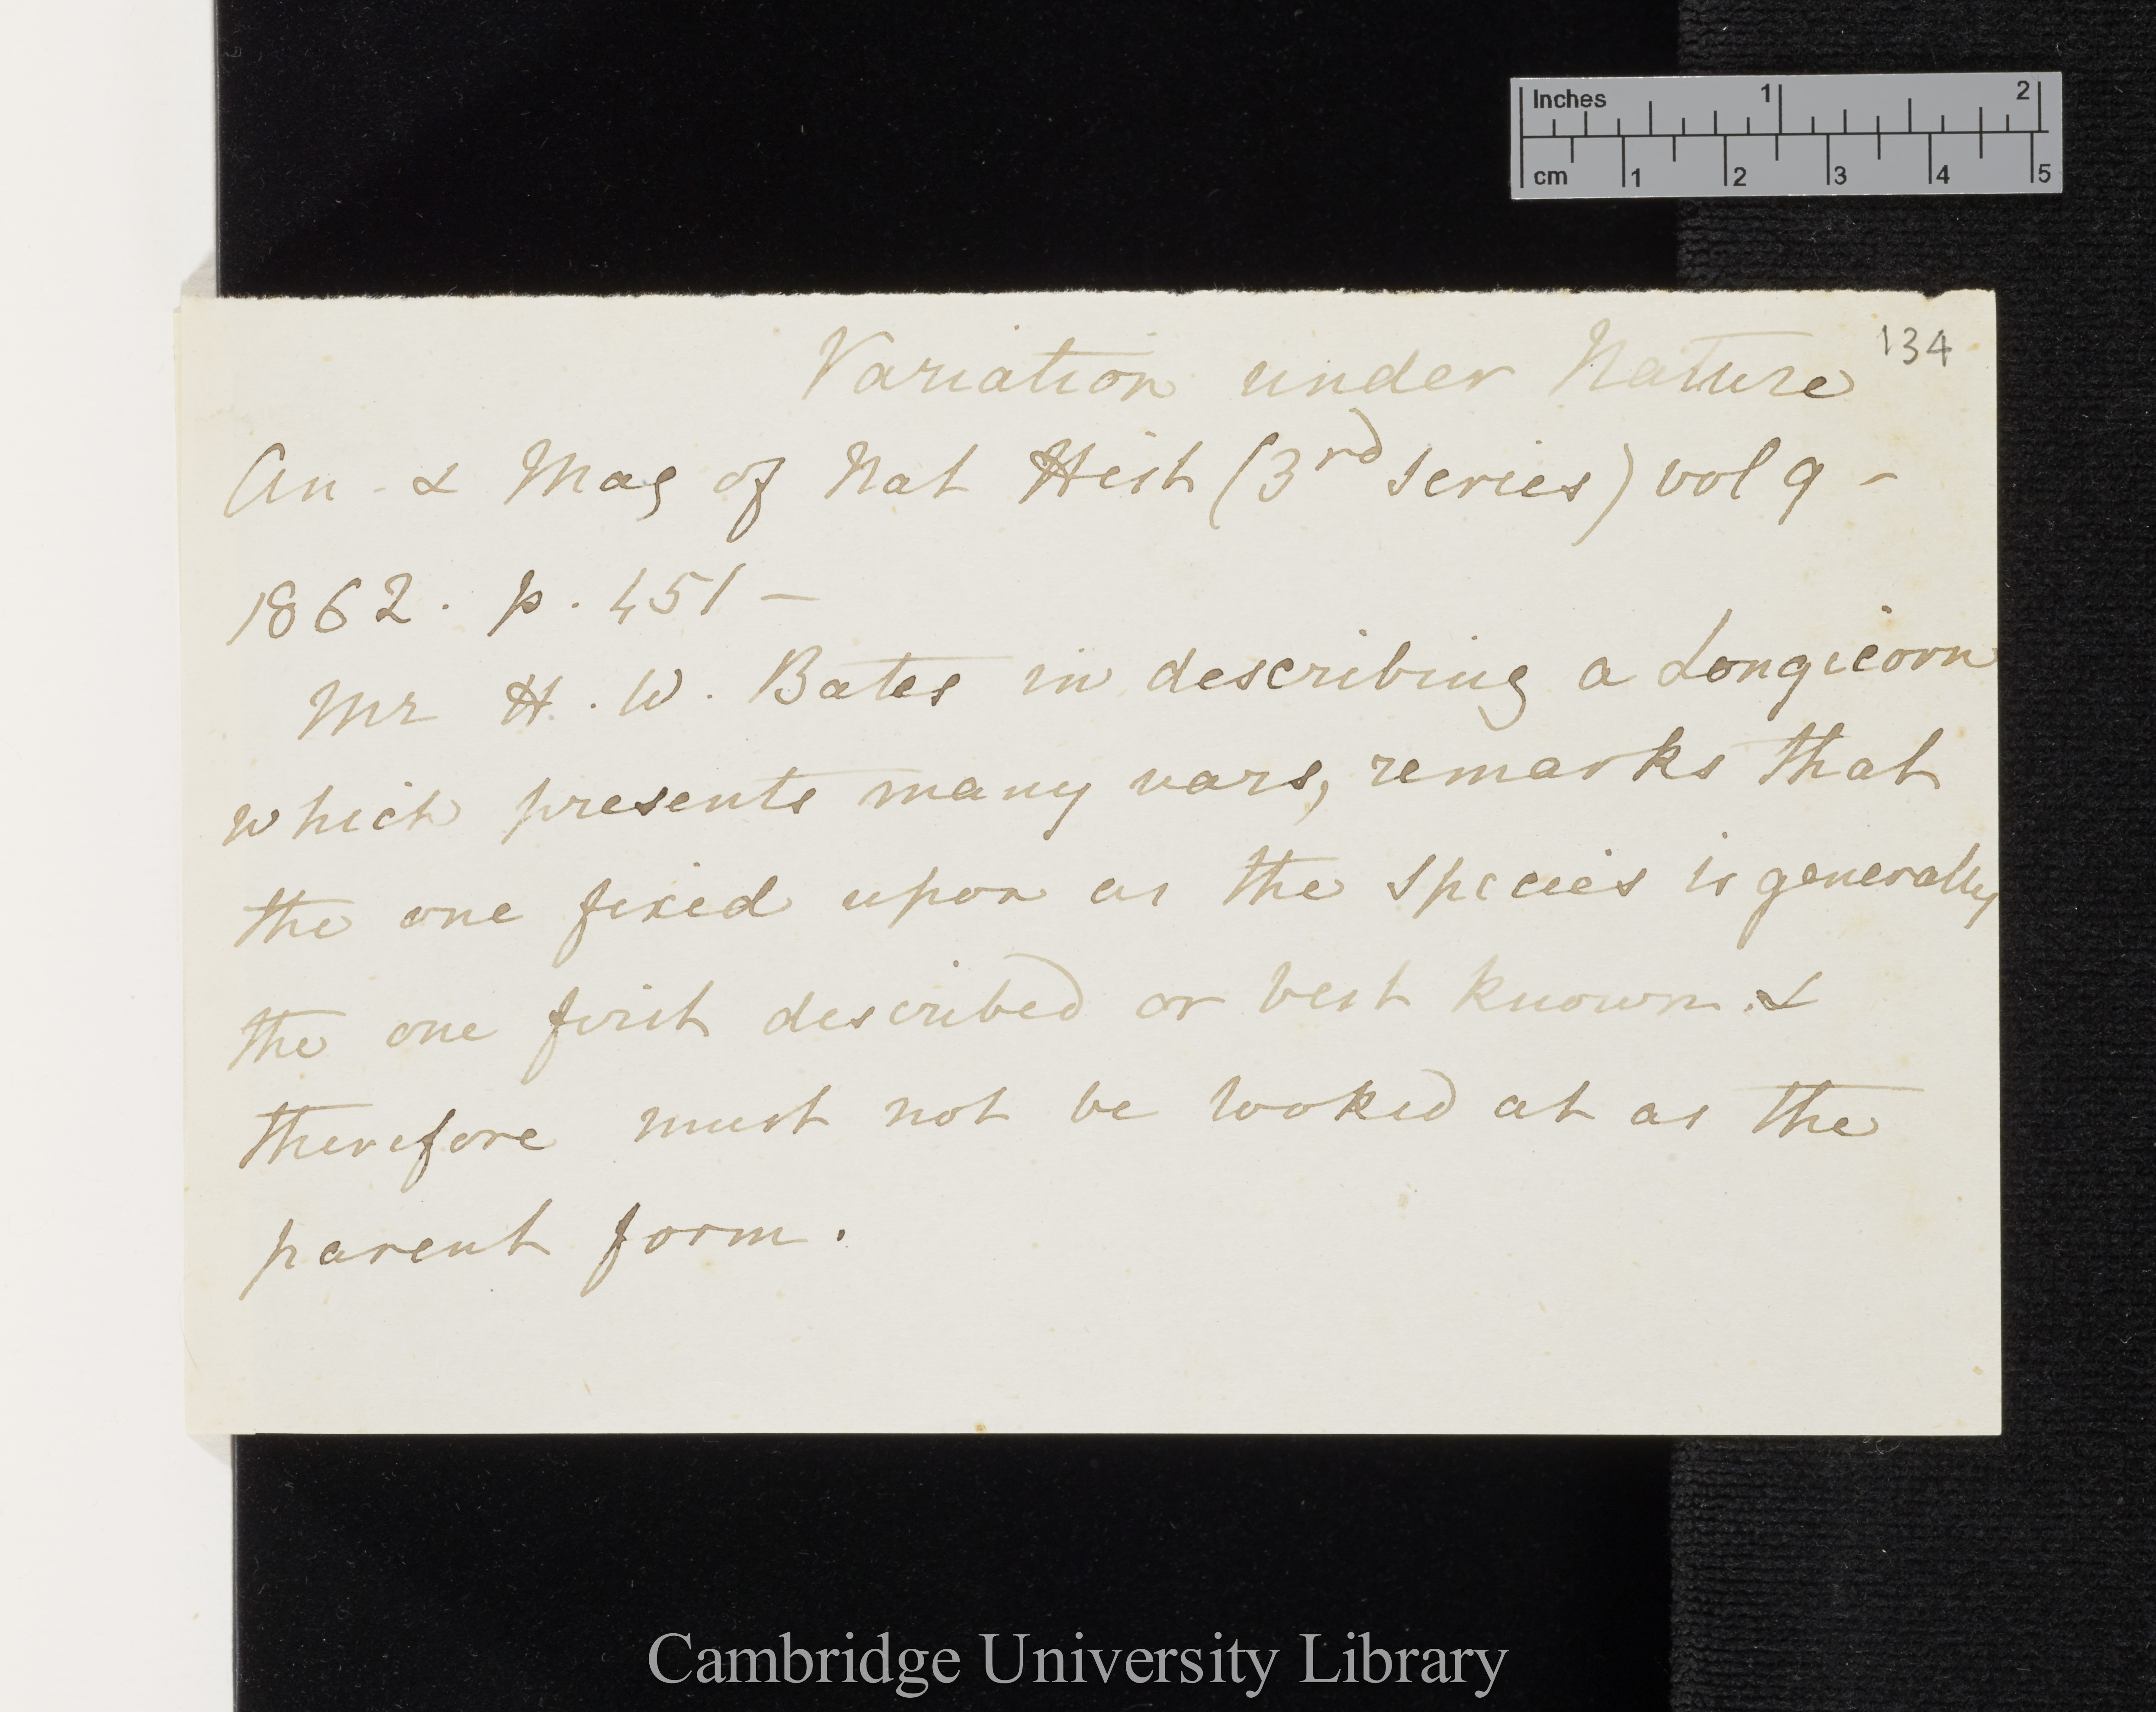 Inches 1 2
cm 1 2 3 4 5
134
Variation under Nature
An. & Mag of Nat Hist (3rd series) vol 9 -
1862. p. 451 -
Mr H. W. Bates in describing a Longicorn
which presents many vars, remarks that
the one fixed upon as the species is generally
the one first described or best known. &
therefore must not be looked at as the
parent form.
Cambridge University Library